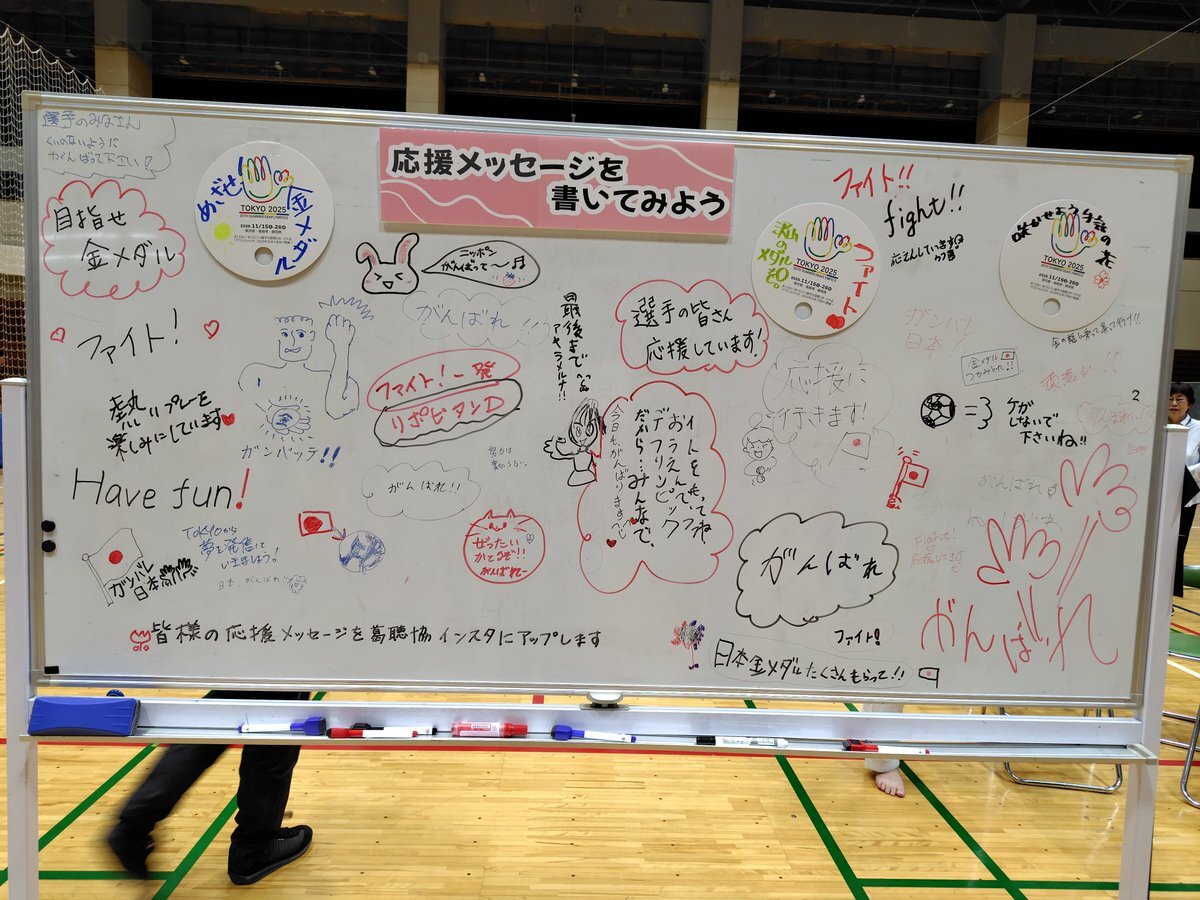 応援メッセージを
書いてみよう
選手のみなさん
くいのないように
がんばって下さい!
目指せ
金メダル
めざせ!
金メダル
TOKYO 2025
25TH SUMMER DEAFLYMPICS
ニッポン
がんばって〜♪
がんばれ!!!
ファイト!
ファイト!一発
リポビタンD
熱いプレーを
楽しみにしています
ガンバッテ!!
Have fun!
がんばれ!!
ガンバレ
日本
TOKYOから
夢を発信して
いきましょう!
日本、がんばれ
ぜったい
かてるぞ!!
がんばれー
最後まで
アキラメルナ!!
選手の皆さん
応援しています!
おうえんで、
デフリンピック
だから…みんなで、
今日も、がんばります
応援に
行きます!
がんばれ
ファイト!
日本金メダルたくさんもらって!!
皆様の応援メッセージを葛聴協インスタにアップします
私の
メダル
ファイト
TOKYO 2025
25TH SUMMER DEAFLYMPICS
ファイト!!
fight!!
応えんしています
TOKYO 2025
25TH SUMMER DEAFLYMPICS
ガンバレ
日本!
金メダル
つかみとれ!!
頑張れ!!
がんばれ!!
2
ケガ
しないで
下さいね!!
がんばれ
Fight!
応援してます
がんばれ